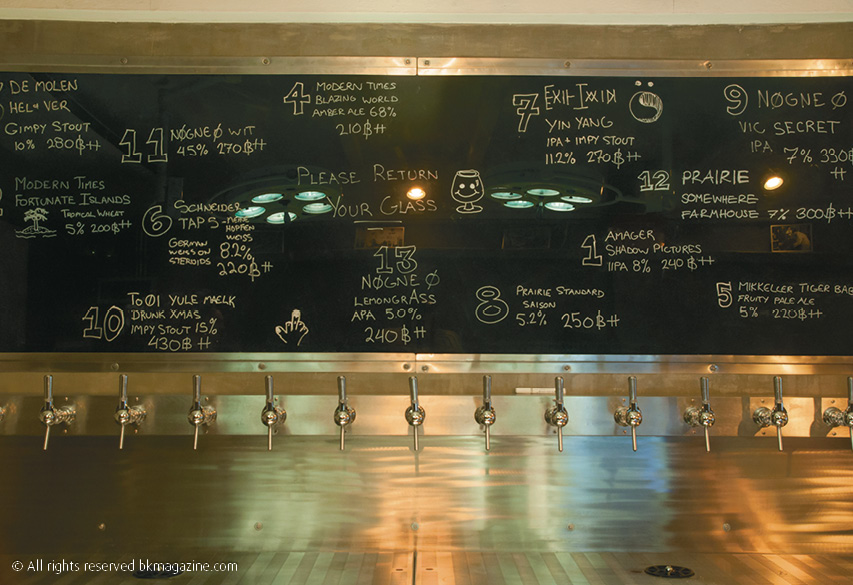 DE MOLEN
HEL & VER
GIMPY STOUT
10% 280฿++
11 NØGNE Ø WIT
4.5% 270฿++
4 MODERN TIMES
BLAZING WORLD
AMBER ALE 6.8%
210฿++
7
YIN YANG
IPA + IMPY STOUT
11.2% 270฿++
9 NØGNE Ø
VIC SECRET
IPA 7% 330฿
++
MODERN TIMES
FORTUNATE ISLANDS
TROPICAL WHEAT
5% 200฿++
6 SCHNEIDER
TAP 5 - MEINE
HOPFEN
WEISS
GERMAN
WEISS ON
STEROIDS
8.2%
220฿++
PLEASE RETURN
YOUR GLASS
12 PRAIRIE
SOMEWHERE
FARMHOUSE 7% 300฿++
1 AMAGER
SHADOW PICTURES
IIPA 8% 240฿++
13
NØGNE Ø
LEMONGRASS
APA 5.0%
240฿++
8 PRAIRIE STANDARD
SAISON
5.2% 250฿++
5 MIKKELLER TIGER BA
FRUITY PALE ALE
5% 220฿++
10 TO Øl YULE MAELK
DRUNK XMAS
IMPY STOUT 15%
430฿++
© All rights reserved bkmagazine.com